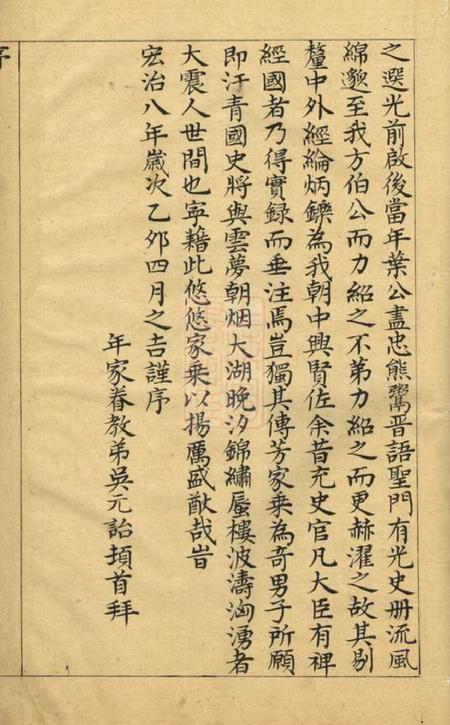 之選光前啟後當年葉公盡忠熊鸞晋語聖門有光史冊流風
綿邈至我方伯公而力紹之不第力紹之而更赫濯之故其剔
釐中外經綸炳鑠為我朝中興賢佐余昔充史官凡大臣有裨
經國者乃得實録而垂注焉豈獨其傳芳家乗為奇男子所願
即汗青國史將與雲夢朝烟大湖晚汐錦繡蜃樓波濤洶湧者
大震人世間也寜藉此悠悠家乗以揚厲盛猷哉旹
宏治八年歲次乙夘四月之吉謹序
年家眷教弟吳元詒頊首拜
序